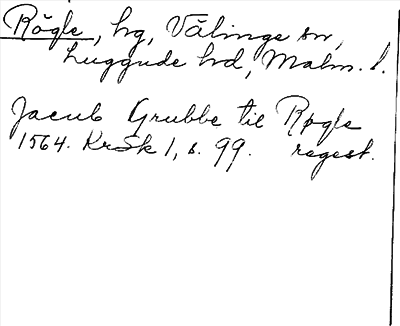 Rögle, hg, Välinge sn,
Luggude hd, Malm. l.
Jacub Grubbe til Røgle
1564. KrSk 1, s. 99. regest.